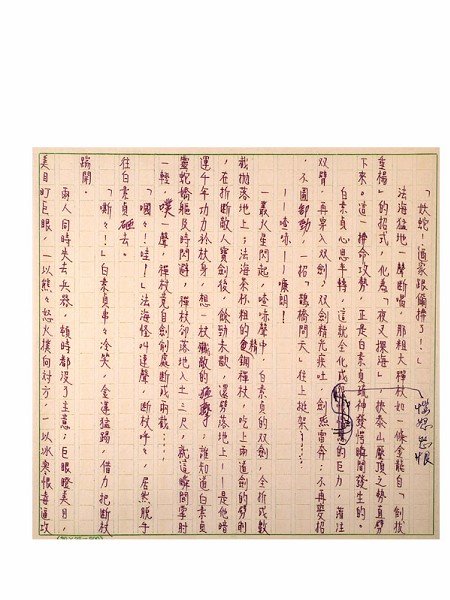 「妖蛇!洒家跟儞拚了!—」
法海猛地一聲斷喝,那粗大禪杖如一條金龍自「劍拔
的招式,化為「夜叉探海」,挾泰山壓頂之勢直劈
下來。這一拚命攻擊,正是白素貞疏神發愕瞬間發生的。
白素貞心思乎轉,這就全化成惱怒悲恨的巨力,灌注
双臂,再掌入双劍,双劍精光疾吐,劍炁雷奔;不再變招
,不圖動,一招「鵲橋問天」往上挺架了……
——喳啼!——嚓朗!
一叢火星閃起,喳啼聲中,白素貞的双劍,全折成數
截拋落地上;法海杯粗的鋼禪杖,吃上兩道劍的劈削
,在折斷敵人寶劍後,餘勁未歇,還劈落地上!—是他暗
運千年功力於杖身,想一杖殲敵的擊;誰知道白素貞
靈蛇嬌軀及時閃避,禪杖卻落地入土三尺,就這瞬間掌肘
一輕,噗一聲,禪杖竟自劍創處斷成兩截……
「嘓々!哇々!」法海怪叫連聲,斷杖呼々,居然脫手
往白素貞砸去。
「嘶々!」白素貞串々冷笑,金蓮猛踢,借力把斷杖
踢開。
兩人同時失去兵器,頓時都沒了主意;巨眼瞪美目,
美目盯巨眼,一以熊々怒火撲向對方,一以冰寒恨毒逼攻